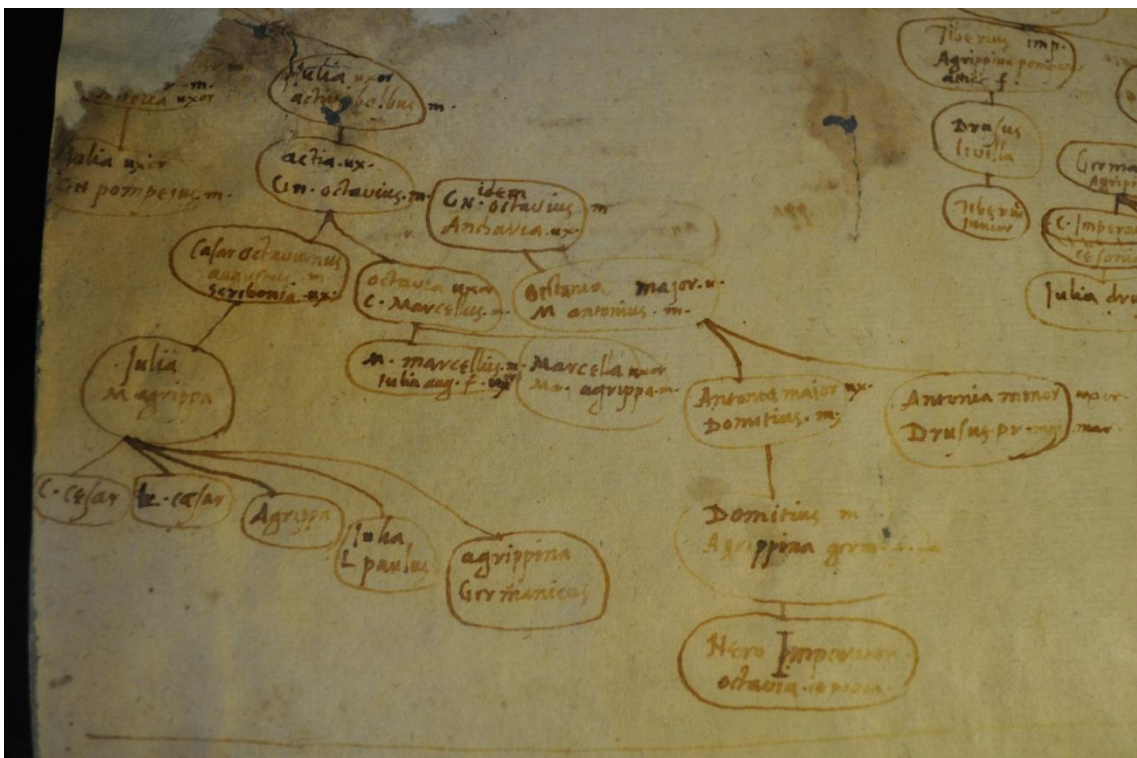 uxor m.
Julia uxor
Gn pompeius. m.
Julia uxor
m.
actia. ux.
Gn. octavius. m.
idem
Gn. octavius m
Ancharia. ux.
Cæsar octavianus
augustus. m
scribonia. ux.
octavia uxor
C. Marcellus. m.
octavia major. u.
M antonius. m.
Julia
M agrippa
M. marcellus. m.
Julia aug. f. uxor
Marcella uxor
Ma. agrippa. m.
Antonia maior ux.
Domitius. m.
Antonia minor uxor.
Drusus mar
C. cesar
L. cæsar
Agrippa
Julia
L paulus
agrippina
Germanicus
Domitius m
Agrippina germ
Nero Imperator
octavia
Tiberius imp.
Agrippina
f.
Drusus
livilla
Tiberi
iunior
Germa
Agripp
C. Impera
cesonia
Julia dru